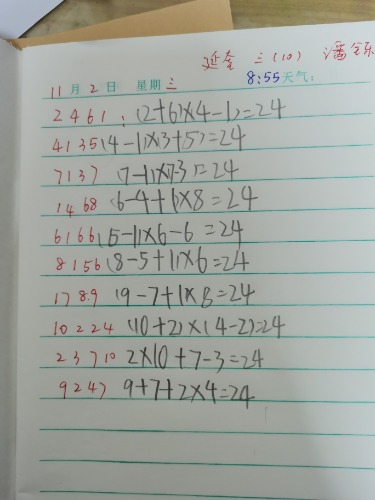 延奎 三(10) 潘
8:55天气:
11月2日 星期三
2 4 6 1 : (2+6)×4-1)=24
4 1 3 5 (4-1)×(3+5)=24
7 1 3 7 (7-1)×(7-3)=24
1 4 6 8 (6-4+1)×8=24
6 1 6 6 (6-1)×6-6=24
8 1 5 6 (8-5+1)×6=24
1 7 8.9 (9-7+1)×8=24
10 2 2 4 (10+2)×(4-2)=24
2 3 7 10 2×10+7-3=24
9 2 4 7 9+7+2×4=24